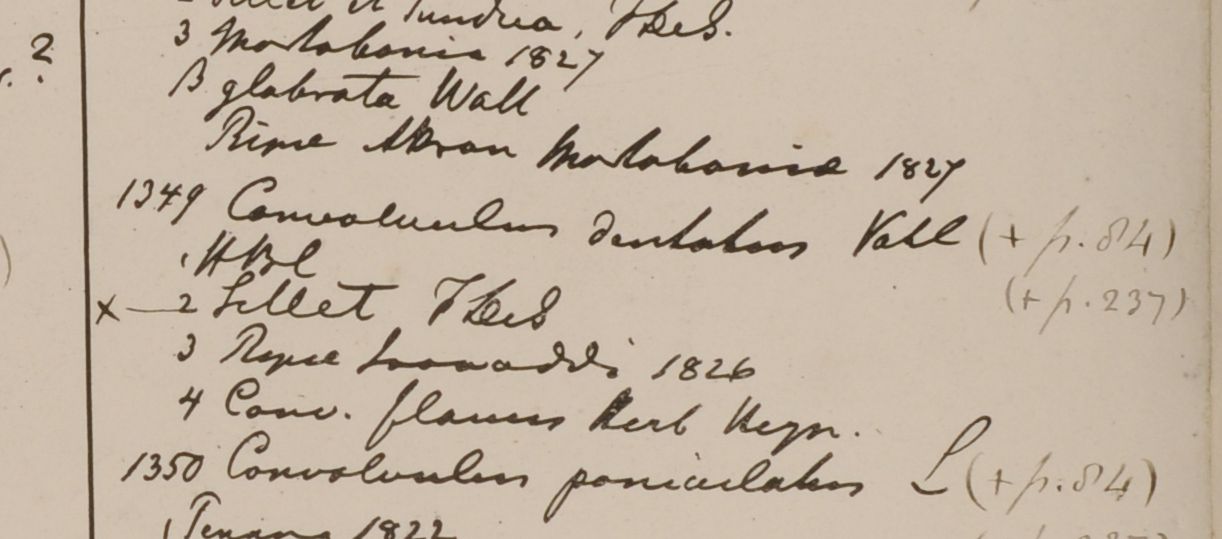 2 Sillet et Pundua, F. De S.
3 Martabania 1827
r. ?
β glabrata Wall
Ripae Attran Martabaniae 1827
1349 Convolvulus dentatus Vahl (+ p. 84)
1 HBC
x — 2 Sillet F De S (+ p. 237)
3 Ripae Irawaddi 1826
4 Conv. flavus Herb Heyn.
1350 Convolvulus paniculatus L (+ p. 84)
1 Penang 1822